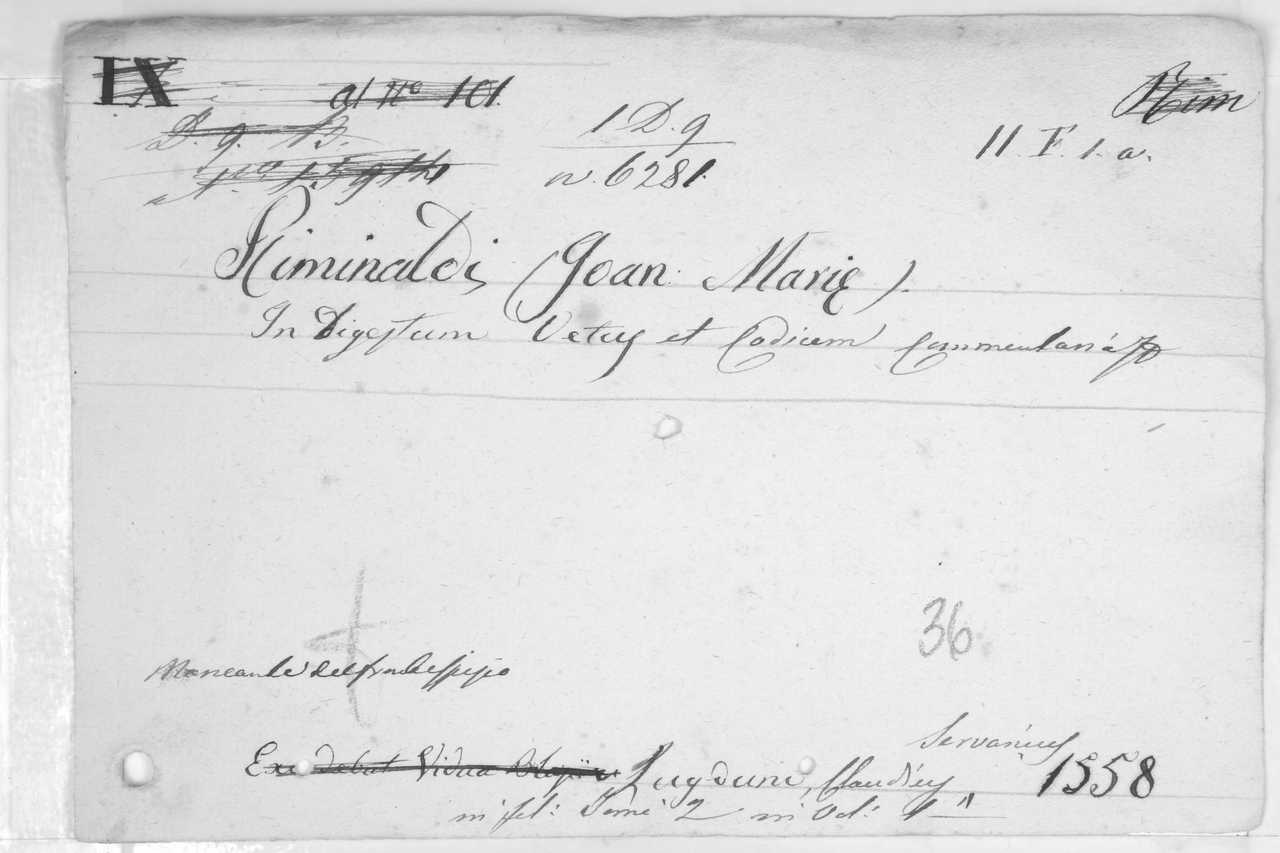 IX al N.º 101. Rim
D. 9. B. 1 D. 9 11. F. 1. a.
n. 6281.
Riminaldi (Joan: Marię).
In Digestum Vetus et Codicem Commentaria
36
Mancante del frontespizio
Servanius
Excudebat Vidua Lugduni, Claudius 1558
in fol: Tomi 2 in Vol: 1"